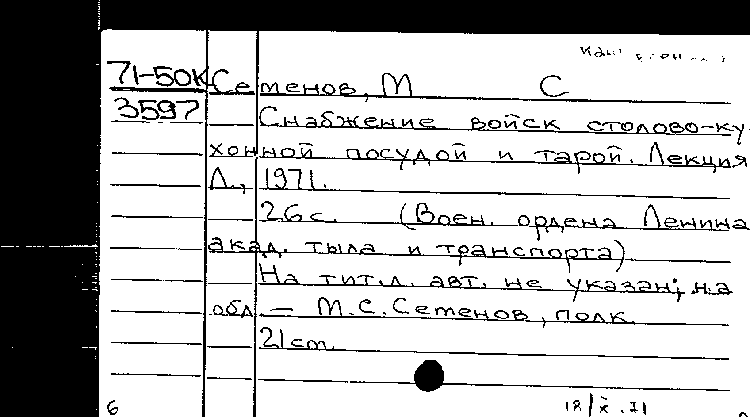 71-50К Семенов, М С
3597 Снабжение войск столово-ку
хонной посудой и тарой. Лекция
Л., 1971.
26 с. (Воен. ордена Ленина
акад. тыла и транспорта)
На тит. л. авт. не указан; на
обл. — М.С. Семенов, полк.
21 cm.
6 18/X.71